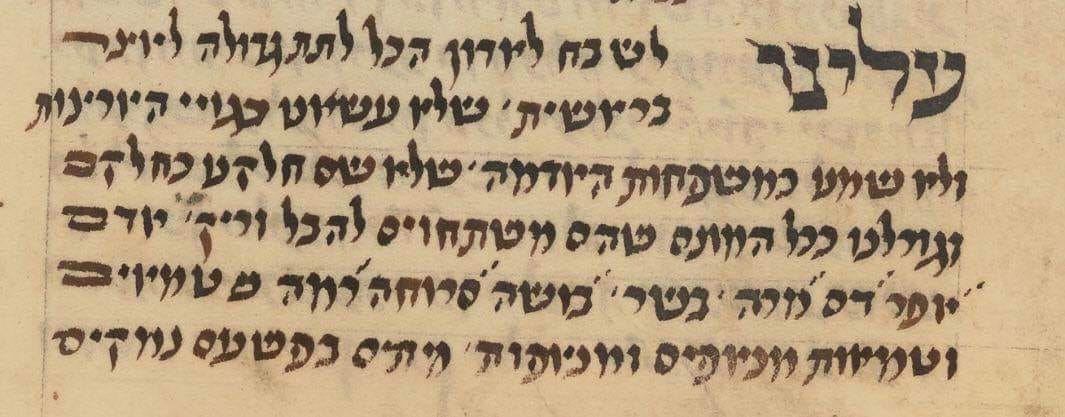 עלינו לשבח לאדון הכל לתת גדולה ליוצר
בראשית׳ שלא עשאנו כגויי הארצות
ולא שמנו כמשפחות האדמה׳ שלא שם חלקנו כחלקם
וגורלנו ככל המונם שהם משתחוים להבל וריק׳ אדם
אפר׳ דם׳ מרה׳ בשר׳ בושה׳ סרוחה׳ רמה טמאים
וטמאות מנאפים ומנאפות׳ מתים בפשעם נמקים